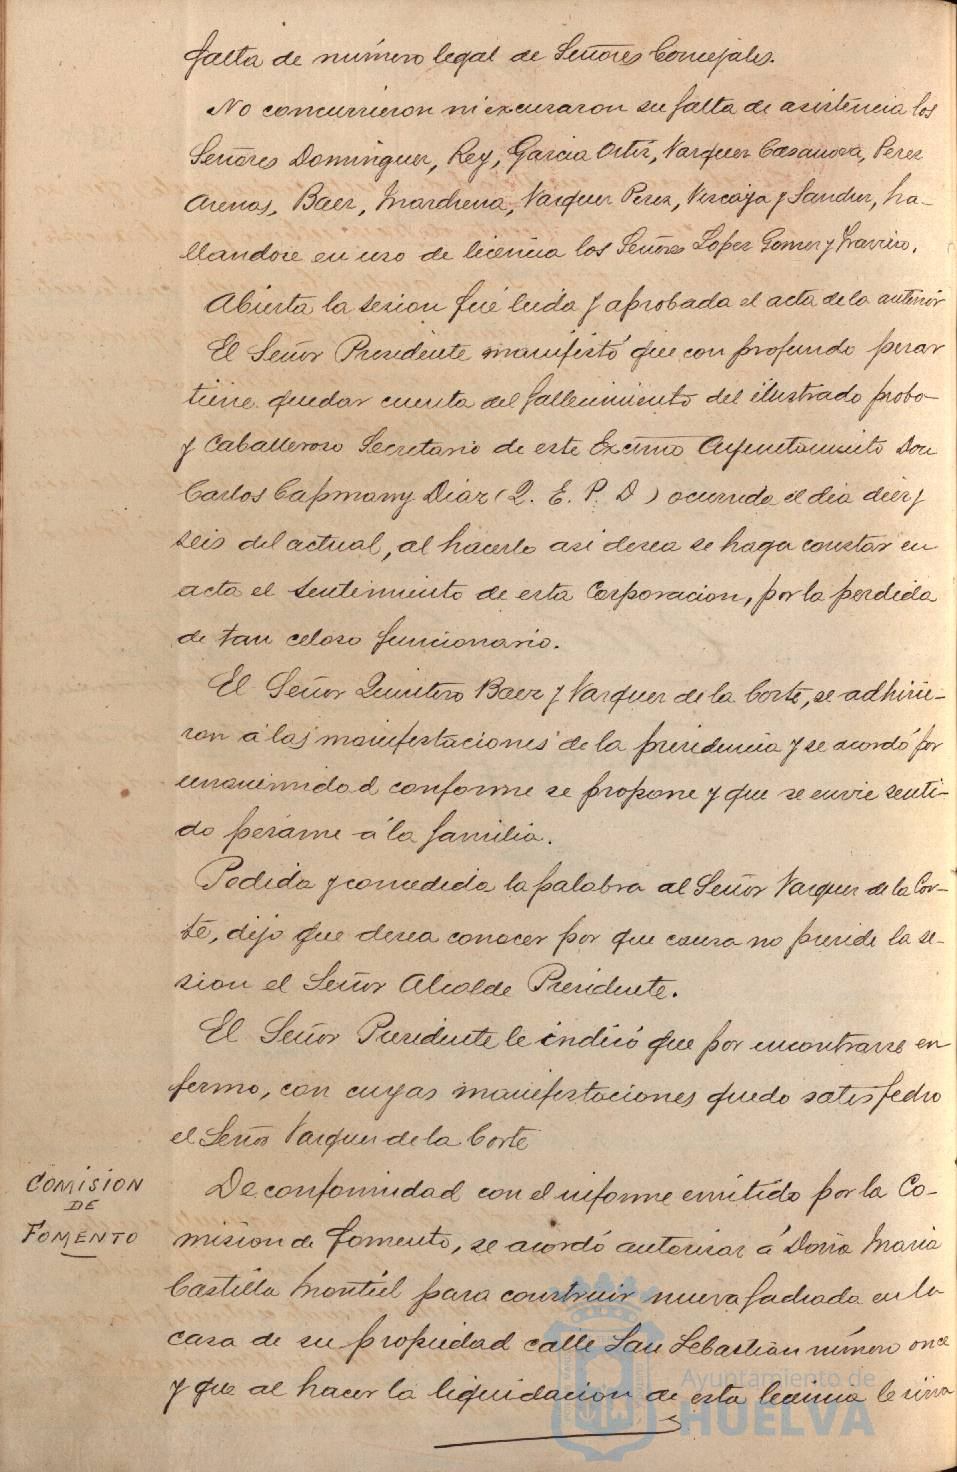 falta de número legal de Señores Concejales.
No concurrieron ni excusaron su falta de asistencia los
Señores Dominguez, Rey, Garcia Ortiz, Vazquez Casanova, Perez
Arenas, Baez, Marchena, Vazquez Perez, Vizcaya y Sanchez, ha-
llandose en uso de licencia los Señores Lopez Gomez y
Abierta la sesion fué leida y aprobada el acta de la anterior
El Señor Presidente manifestó que con profundo pesar
tiene que dar cuenta del fallecimiento del ilustrado probo
y Caballeroso Secretario de este Excmo Ayuntamiento Don
Carlos Capmany Diaz (Q. E. P. D) ocurrido el dia diez y
seis del actual, al hacerlo asi desea se haga constar en
acta el sentimiento de esta Corporacion, por la perdida
de tan celoso funcionario.
El Señor Quintero Baez y Vazquez de la Corte, se adhirie-
ron á las manifestaciones de la presidencia y se acordó por
unanimidad conforme se propone y que se envie senti-
do pésame á la familia.
Pedida y concedida la palabra al Señor Vazquez de la Cor-
te, dijo que desea conocer por que causa no preside la se-
sion el Señor Alcalde Presidente.
El Señor Presidente le indicó que por encontrarse en
fermo, con cuyas manifestaciones quedo satisfecho
el Señor Vazquez de la Corte
COMISION
DE
FOMENTO
De conformidad con el informe emitido por la Co-
mision de fomento, se acordó autorizar á Doña Maria
Castilla Montiel para construir nueva fachada en la
casa de su propiedad calle San Sebastian número once
y que al hacer la liquidacion de esta licencia le sirva
Ayuntamiento de
HUELVA